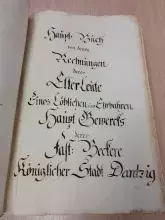 Haupt: Buch
von denen
Rechnungen
derer
Elter Leüte
Eines Löblichen und Ehrbahren
Haupt Gewercks
derer
Fast: Beckere
Königlicher Stadt Dantzig